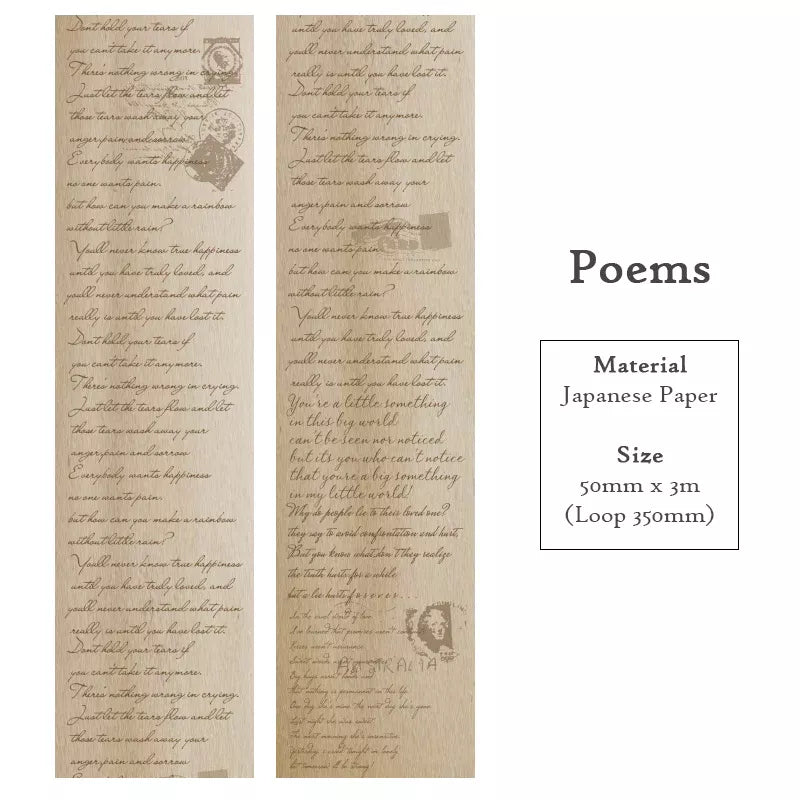 Dont hold your tears if
you cant take it any more.
There's nothing wrong in crying.
Just let the tears flow and let
those tears wash away your
anger,pain and sorrow
Everybody wants happiness
no one wants pain.
but how can you make a rainbow
without little rain?
Youll never know true happiness
until you have truly loved, and
youll never understand what pain
really is until you have lost it.
Dont hold your tears if
you cant take it any more.
There's nothing wrong in crying.
Just let the tears flow and let
those tears wash away your
anger,pain and sorrow
Everybody wants happiness
no one wants pain.
but how can you make a rainbow
without little rain?
Youll never know true happiness
until you have truly loved, and
youll never understand what pain
really is until you have lost it.
Dont hold your tears if
you cant take it any more.
There's nothing wrong in crying.
Just let the tears flow and let
those tears wash away your
anger,pain and sorrow
until you have truly loved, and
youll never understand what pain
really is until you have lost it.
Dont hold your tears if
you cant take it any more.
There's nothing wrong in crying.
Just let the tears flow and let
those tears wash away your
anger,pain and sorrow
Everybody wants happiness
no one wants pain.
but how can you make a rainbow
without little rain?
Youll never know true happiness
until you have truly loved, and
youll never understand what pain
really is until you have lost it.
You're a little something
in this big world
can't be seen nor noticed
but its you who can't notice
that you're a big something
in my little world!
Why do people lie to their loved one?
they say to avoid confrontation and hurt,
But you know what don't they realize
the truth hurts for a while
but a lie hurts f o r e v e r . . .
In the cruel world of love
I've learned that promises aren't
Kisses aren't
Sweet words
AUSTRALIA
that nothing is permanent in this life.
One day she's mine the next day she's gone.
Last night she was sweet.
the next morning she's insensitive.
Poems
Material
Japanese Paper
Size
50mm x 3m
(Loop 350mm)